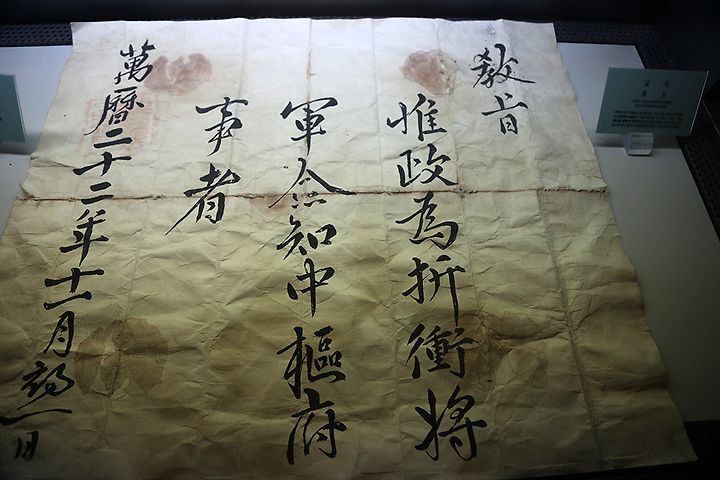 敎旨
惟政為折衝將
軍僉知中樞府
事者
萬曆二十二年十一月初一日
교지